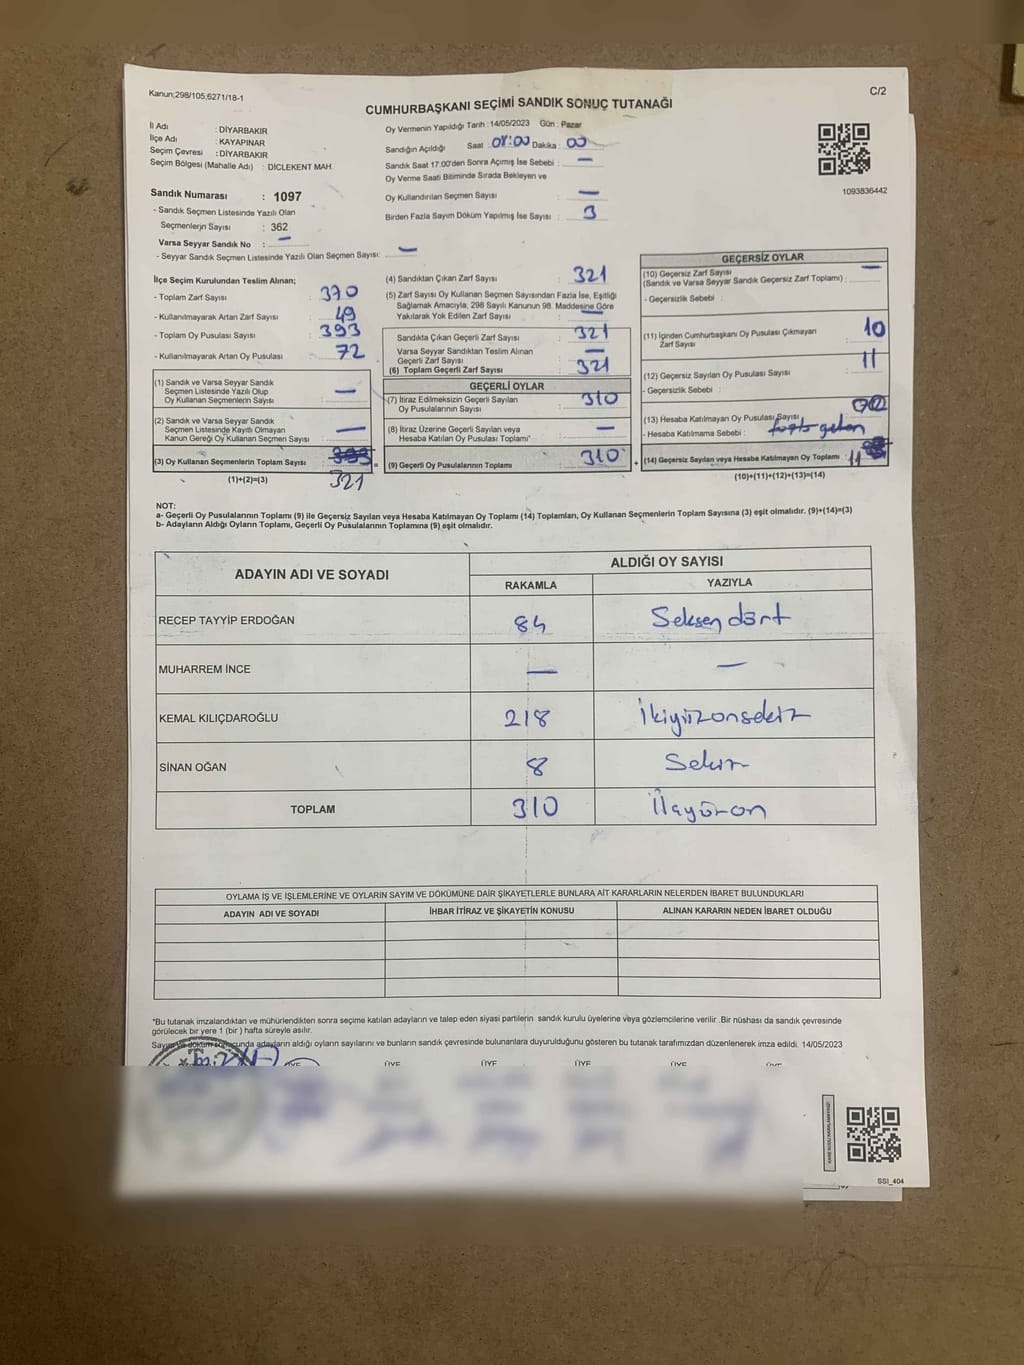 Kanun;298/105,6271/18-1
C/2
CUMHURBAŞKANI SEÇİMİ SANDIK SONUÇ TUTANAĞI
İl Adı : DİYARBAKIR
İlçe Adı : KAYAPINAR
Seçim Çevresi : DİYARBAKIR
Seçim Bölgesi (Mahalle Adı) : DICLEKENT MAH.
Sandık Numarası : 1097
- Sandık Seçmen Listesinde Yazılı Olan
Seçmenlerin Sayısı : 362
Varsa Seyyar Sandık No : —
- Seyyar Sandık Seçmen Listesinde Yazılı Olan Seçmen Sayısı: —
Oy Vermenin Yapıldığı Tarih :14/05/2023 Gün : Pazar
Sandığın Açıldığı Saat : 08:00 Dakika : 00
Sandık Saat 17.00'den Sonra Açımış İse Sebebi : —
Oy Verme Saati Bitiminde Sırada Bekleyen ve
Oy Kullandırılan Seçmen Sayısı : —
Birden Fazla Sayım Döküm Yapılmış İse Sayısı : 3
1093836442
İlçe Seçim Kurulundan Teslim Alınan;
- Toplam Zarf Sayısı : 370
- Kullanılmayarak Artan Zarf Sayısı : 49
- Toplam Oy Pusulası Sayısı : 393
- Kullanılmayarak Artan Oy Pusulası : 72
(1) Sandık ve Varsa Seyyar Sandık
Seçmen Listesinde Yazılı Olup
Oy Kullanan Seçmenlerin Sayısı : —
(2) Sandık ve Varsa Seyyar Sandık
Seçmen Listesinde Kayıtlı Olmayan
Kanun Gereği Oy Kullanan Seçmen Sayısı : —
(3) Oy Kullanan Seçmenlerin Toplam Sayısı :
(1)+(2)=(3) 321
(4) Sandıktan Çıkan Zarf Sayısı : 321
(5) Zarf Sayısı Oy Kullanan Seçmen Sayısından Fazla İse, Eşitliği
Sağlamak Amacıyla, 298 Sayılı Kanunun 98. Maddesine Göre
Yakılarak Yok Edilen Zarf Sayısı : —
Sandıkta Çıkan Geçerli Zarf Sayısı : 321
Varsa Seyyar Sandıktan Teslim Alınan
Geçerli Zarf Sayısı : —
(6) Toplam Geçerli Zarf Sayısı : 321
GEÇERLİ OYLAR
(7) İtiraz Edilmeksizin Geçerli Sayılan
Oy Pusulalarının Sayısı : 310
(8) İtiraz Üzerine Geçerli Sayılan veya
Hesaba Katılan Oy Pusulası Toplamı : —
(9) Geçerli Oy Pusulalarının Toplamı : 310
GEÇERSİZ OYLAR
(10) Geçersiz Zarf Sayısı
(Sandık ve Varsa Seyyar Sandık Geçersiz Zarf Toplamı) : —
- Geçersizlik Sebebi :
(11) İçinden Cumhurbaşkanı Oy Pusulası Çıkmayan
Zarf Sayısı : 10
(12) Geçersiz Sayılan Oy Pusulası Sayısı : 11
- Geçersizlik Sebebi :
(13) Hesaba Katılmayan Oy Pusulası Sayısı :
- Hesaba Katılmama Sebebi : fazla gelen
(14) Geçersiz Sayılan veya Hesaba Katılmayan Oy Toplamı : 11
(10)+(11)+(12)+(13)=(14)
NOT:
a- Geçerli Oy Pusulalarının Toplamı (9) ile Geçersiz Sayılan veya Hesaba Katılmayan Oy Toplamı (14) Toplamları, Oy Kullanan Seçmenlerin Toplam Sayısına (3) eşit olmalıdır. (9)+(14)=(3)
b- Adayların Aldığı Oyların Toplamı, Geçerli Oy Pusulalarının Toplamına (9) eşit olmalıdır.
ADAYIN ADI VE SOYADI
ALDIĞI OY SAYISI
RAKAMLA YAZIYLA
RECEP TAYYİP ERDOĞAN 84 Seksen dört
MUHARREM İNCE — —
KEMAL KILIÇDAROĞLU 218 İkiyüzonsekiz
SİNAN OĞAN 8 Sekiz
TOPLAM 310
OYLAMA İŞ VE İŞLEMLERİNE VE OYLARIN SAYIM VE DÖKÜMÜNE DAİR ŞİKAYETLERLE BUNLARA AİT KARARLARIN NELERDEN İBARET BULUNDUKLARI
ADAYIN ADI VE SOYADI İHBAR İTİRAZ VE ŞİKAYETİN KONUSU ALINAN KARARIN NEDEN İBARET OLDUĞU
*Bu tutanak imzalandıktan ve mühürlendikten sonra seçime katılan adayların ve talep eden siyasi partilerin sandık kurulu üyelerine veya gözlemcilerine verilir .Bir nüshası da sandık çevresinde
görülecek bir yere 1 (bir ) hafta süreyle asılır.
Sayım ve döküm sonucunda adayların aldığı oyların sayılarını ve bunların sandık çevresinde bulunanlara duyurulduğunu gösteren bu tutanak tarafımızdan düzenlenerek imza edildi. 14/05/2023
ÜYE ÜYE ÜYE ÜYE ÜYE ÜYE
SSI_404